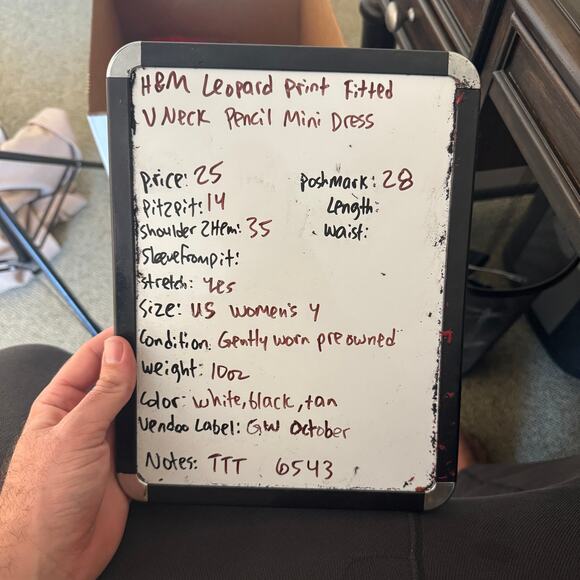 H&M Leopard Print Fitted
V Neck Pencil Mini Dress
Price: 25 Poshmark: 28
Pit2pit: 14 Length:
Shoulder 2 Hem: 35 Waist:
Sleeve from pit:
Stretch: yes
Size: US women's 4
Condition: Gently worn preowned
Weight: 10oz
Color: white, black, tan
Vendoo Label: GW October
Notes: TTT 6543